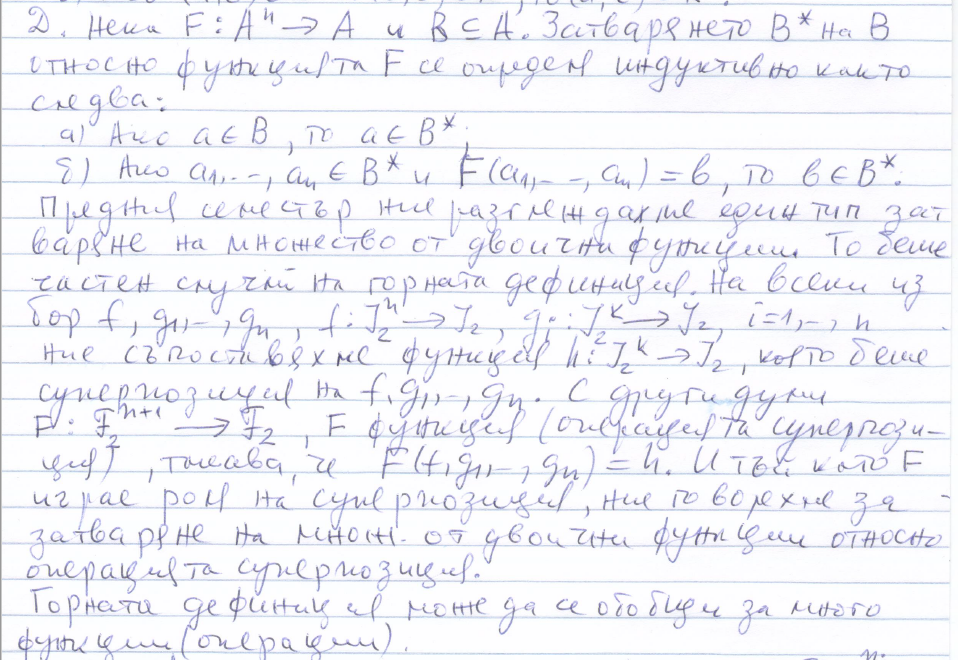 Д. Нека F : Aⁿ → A и B ⊆ A. Затварянето B* на B
относно функцията F се определя индуктивно както
следва:
а) Ако a ∈ B, то a ∈ B*;
б) Ако a₁, --, aₙ ∈ B* и F(a₁, --, aₙ) = b, то b ∈ B*.
Предния семестър ние разглеждахме един тип зат
варяне на множество от двоични функции. То беше
частен случай на горната дефиниция. На всеки из
бор f, g₁, --, gₙ, f : J₂ⁿ → J₂, gᵢ : J₂ᵏ → J₂, i=1, --, n
ние съпоставяхме функция h : J₂ᵏ → J₂, която беше
суперпозиция на f, g₁, --, gₙ. С други думи
F : F₂ⁿ⁺¹ → F₂, F функция (операцията суперпози-
ция), такава, че F(f, g₁, --, gₙ) = h. И тъй като F
играе роля на суперпозиция, ние говорехме за
затваряне на множ. от двоични функции относно
операцията суперпозиция.
Горната дефиниция може да се обобщи за много
функции (операции).